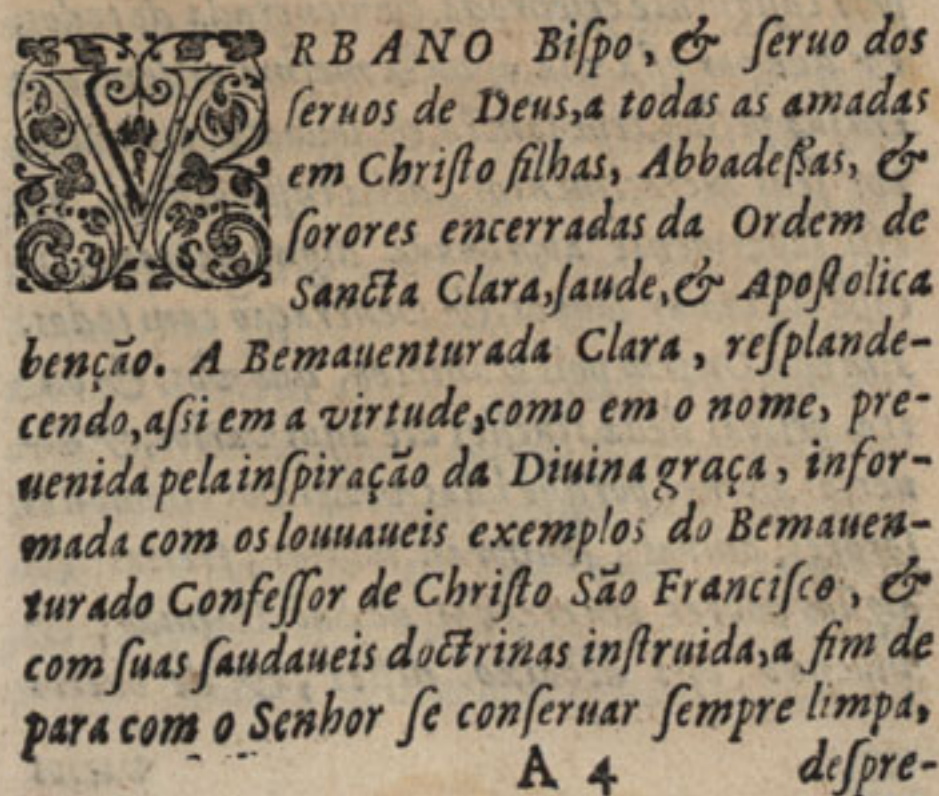 VRBANO Biſpo, & ſeruo dos
ſeruos de Deus,a todas as amadas
em Chriſto filhas, Abbadeſſas, &
ſorores encerradas da Ordem de
Sancta Clara,ſaude,& Apoſtolica
benção. A Bemauenturada Clara, reſplande-
cendo,aſsi em a virtude,como em o nome, pre-
uenida pela inſpiração da Diuina graça, infor-
mada com os louuaueis exemplos do Bemauen-
turado Confeſſor de Chriſto São Franciſco, &
com ſuas ſaudaueis doctrinas inſtruida,a fim de
para com o Senhor ſe conſeruar ſempre limpa,
A 4 deſpre-